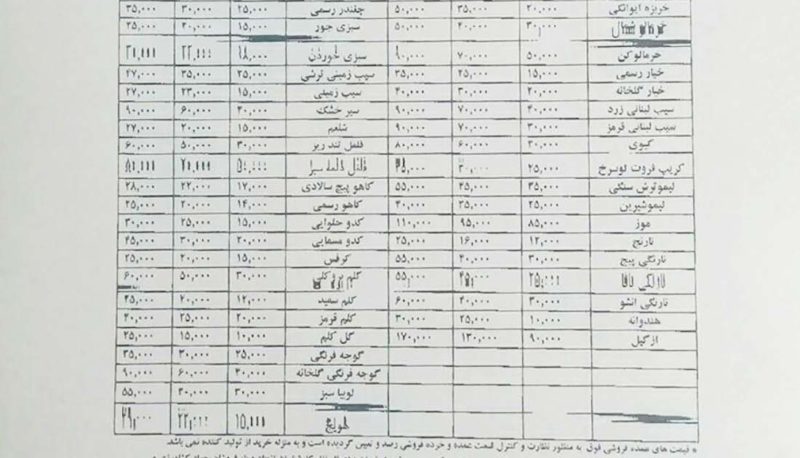 خربزه ایوانکی ۲۰,۰۰۰ ۳۵,۰۰۰ ۵۰,۰۰۰ چغندر رسمی ۲۵,۰۰۰ ۳۰,۰۰۰ ۳۵,۰۰۰
خرمالو شمال ۳۰,۰۰۰ ۴۰,۰۰۰ ۵۰,۰۰۰ سبزی جور ۱۵,۰۰۰ ۲۰,۰۰۰ ۲۵,۰۰۰
خرمالوکن ۵۰,۰۰۰ ۷۰,۰۰۰ ۹۰,۰۰۰ سبزی خوردن ۱۸,۰۰۰ ۲۲,۰۰۰
خیار رسمی ۱۵,۰۰۰ ۲۵,۰۰۰ ۳۵,۰۰۰ سیب زمینی ترشی ۲۵,۰۰۰ ۳۵,۰۰۰ ۴۷,۰۰۰
خیار گلخانه ۲۰,۰۰۰ ۳۰,۰۰۰ ۴۰,۰۰۰ سیب زمینی ۱۵,۰۰۰ ۲۳,۰۰۰ ۲۷,۰۰۰
سیب لبنانی زرد ۴۰,۰۰۰ ۷۰,۰۰۰ ۹۰,۰۰۰ سیر خشک ۴۰,۰۰۰ ۶۰,۰۰۰ ۹۰,۰۰۰
سیب لبنانی قرمز ۳۰,۰۰۰ ۷۰,۰۰۰ ۹۰,۰۰۰ شلغم ۱۵,۰۰۰ ۲۰,۰۰۰ ۲۷,۰۰۰
کیوی ۳۰,۰۰۰ ۶۰,۰۰۰ ۸۰,۰۰۰ فلفل تند ریز ۳۰,۰۰۰ ۵۰,۰۰۰ ۶۰,۰۰۰
کریپ فروت توسرخ ۲۵,۰۰۰ فلفل دلمه سبز
لیموترش سنگی ۳۵,۰۰۰ ۴۵,۰۰۰ ۵۵,۰۰۰ کاهو پیچ سالادی ۱۷,۰۰۰ ۲۲,۰۰۰ ۲۸,۰۰۰
لیموشیرین ۲۵,۰۰۰ ۳۵,۰۰۰ ۴۰,۰۰۰ کاهو رسمی ۱۴,۰۰۰ ۲۰,۰۰۰ ۲۵,۰۰۰
موز ۸۵,۰۰۰ ۹۵,۰۰۰ ۱۱۰,۰۰۰ کدو حلوایی ۱۵,۰۰۰ ۲۵,۰۰۰ ۳۰,۰۰۰
نارنج ۱۲,۰۰۰ ۱۶,۰۰۰ ۲۵,۰۰۰ کدو مسمایی ۲۰,۰۰۰ ۳۰,۰۰۰ ۴۵,۰۰۰
نارنگی پیچ ۳۰,۰۰۰ ۴۰,۰۰۰ ۵۵,۰۰۰ کرفس ۱۵,۰۰۰ ۲۰,۰۰۰ ۲۵,۰۰۰
۲۵,۰۰۰ ۴۵,۰۰۰ ۵۵,۰۰۰ کلم بروکلی ۳۰,۰۰۰ ۵۰,۰۰۰ ۶۰,۰۰۰
نارنگی انشو ۳۰,۰۰۰ ۴۰,۰۰۰ ۶۰,۰۰۰ کلم سفید ۱۲,۰۰۰ ۲۰,۰۰۰ ۲۵,۰۰۰
هندوانه ۱۰,۰۰۰ ۲۵,۰۰۰ ۳۰,۰۰۰ کلم قرمز ۲۰,۰۰۰ ۲۵,۰۰۰ ۴۰,۰۰۰
ازگیل ۹۰,۰۰۰ ۱۳۰,۰۰۰ ۱۷۰,۰۰۰ گل کلم ۱۰,۰۰۰ ۱۵,۰۰۰ ۲۵,۰۰۰
گوجه فرنگی ۲۵,۰۰۰ ۳۰,۰۰۰ ۳۵,۰۰۰
گوجه فرنگی گلخانه ۴۰,۰۰۰ ۶۰,۰۰۰ ۹۰,۰۰۰
لوبیا سبز ۳۰,۰۰۰ ۴۰,۰۰۰ ۵۵,۰۰۰
هویج ۱۵,۰۰۰ ۲۲,۰۰۰ ۲۹,۰۰۰
* قیمت های عمده فروشی فوق به منظور نظارت و کنترل قیمت عمده و خرده فروشی رصد و تعیین گردیده است و به منزله خرید از تولید کننده نمی باشد.